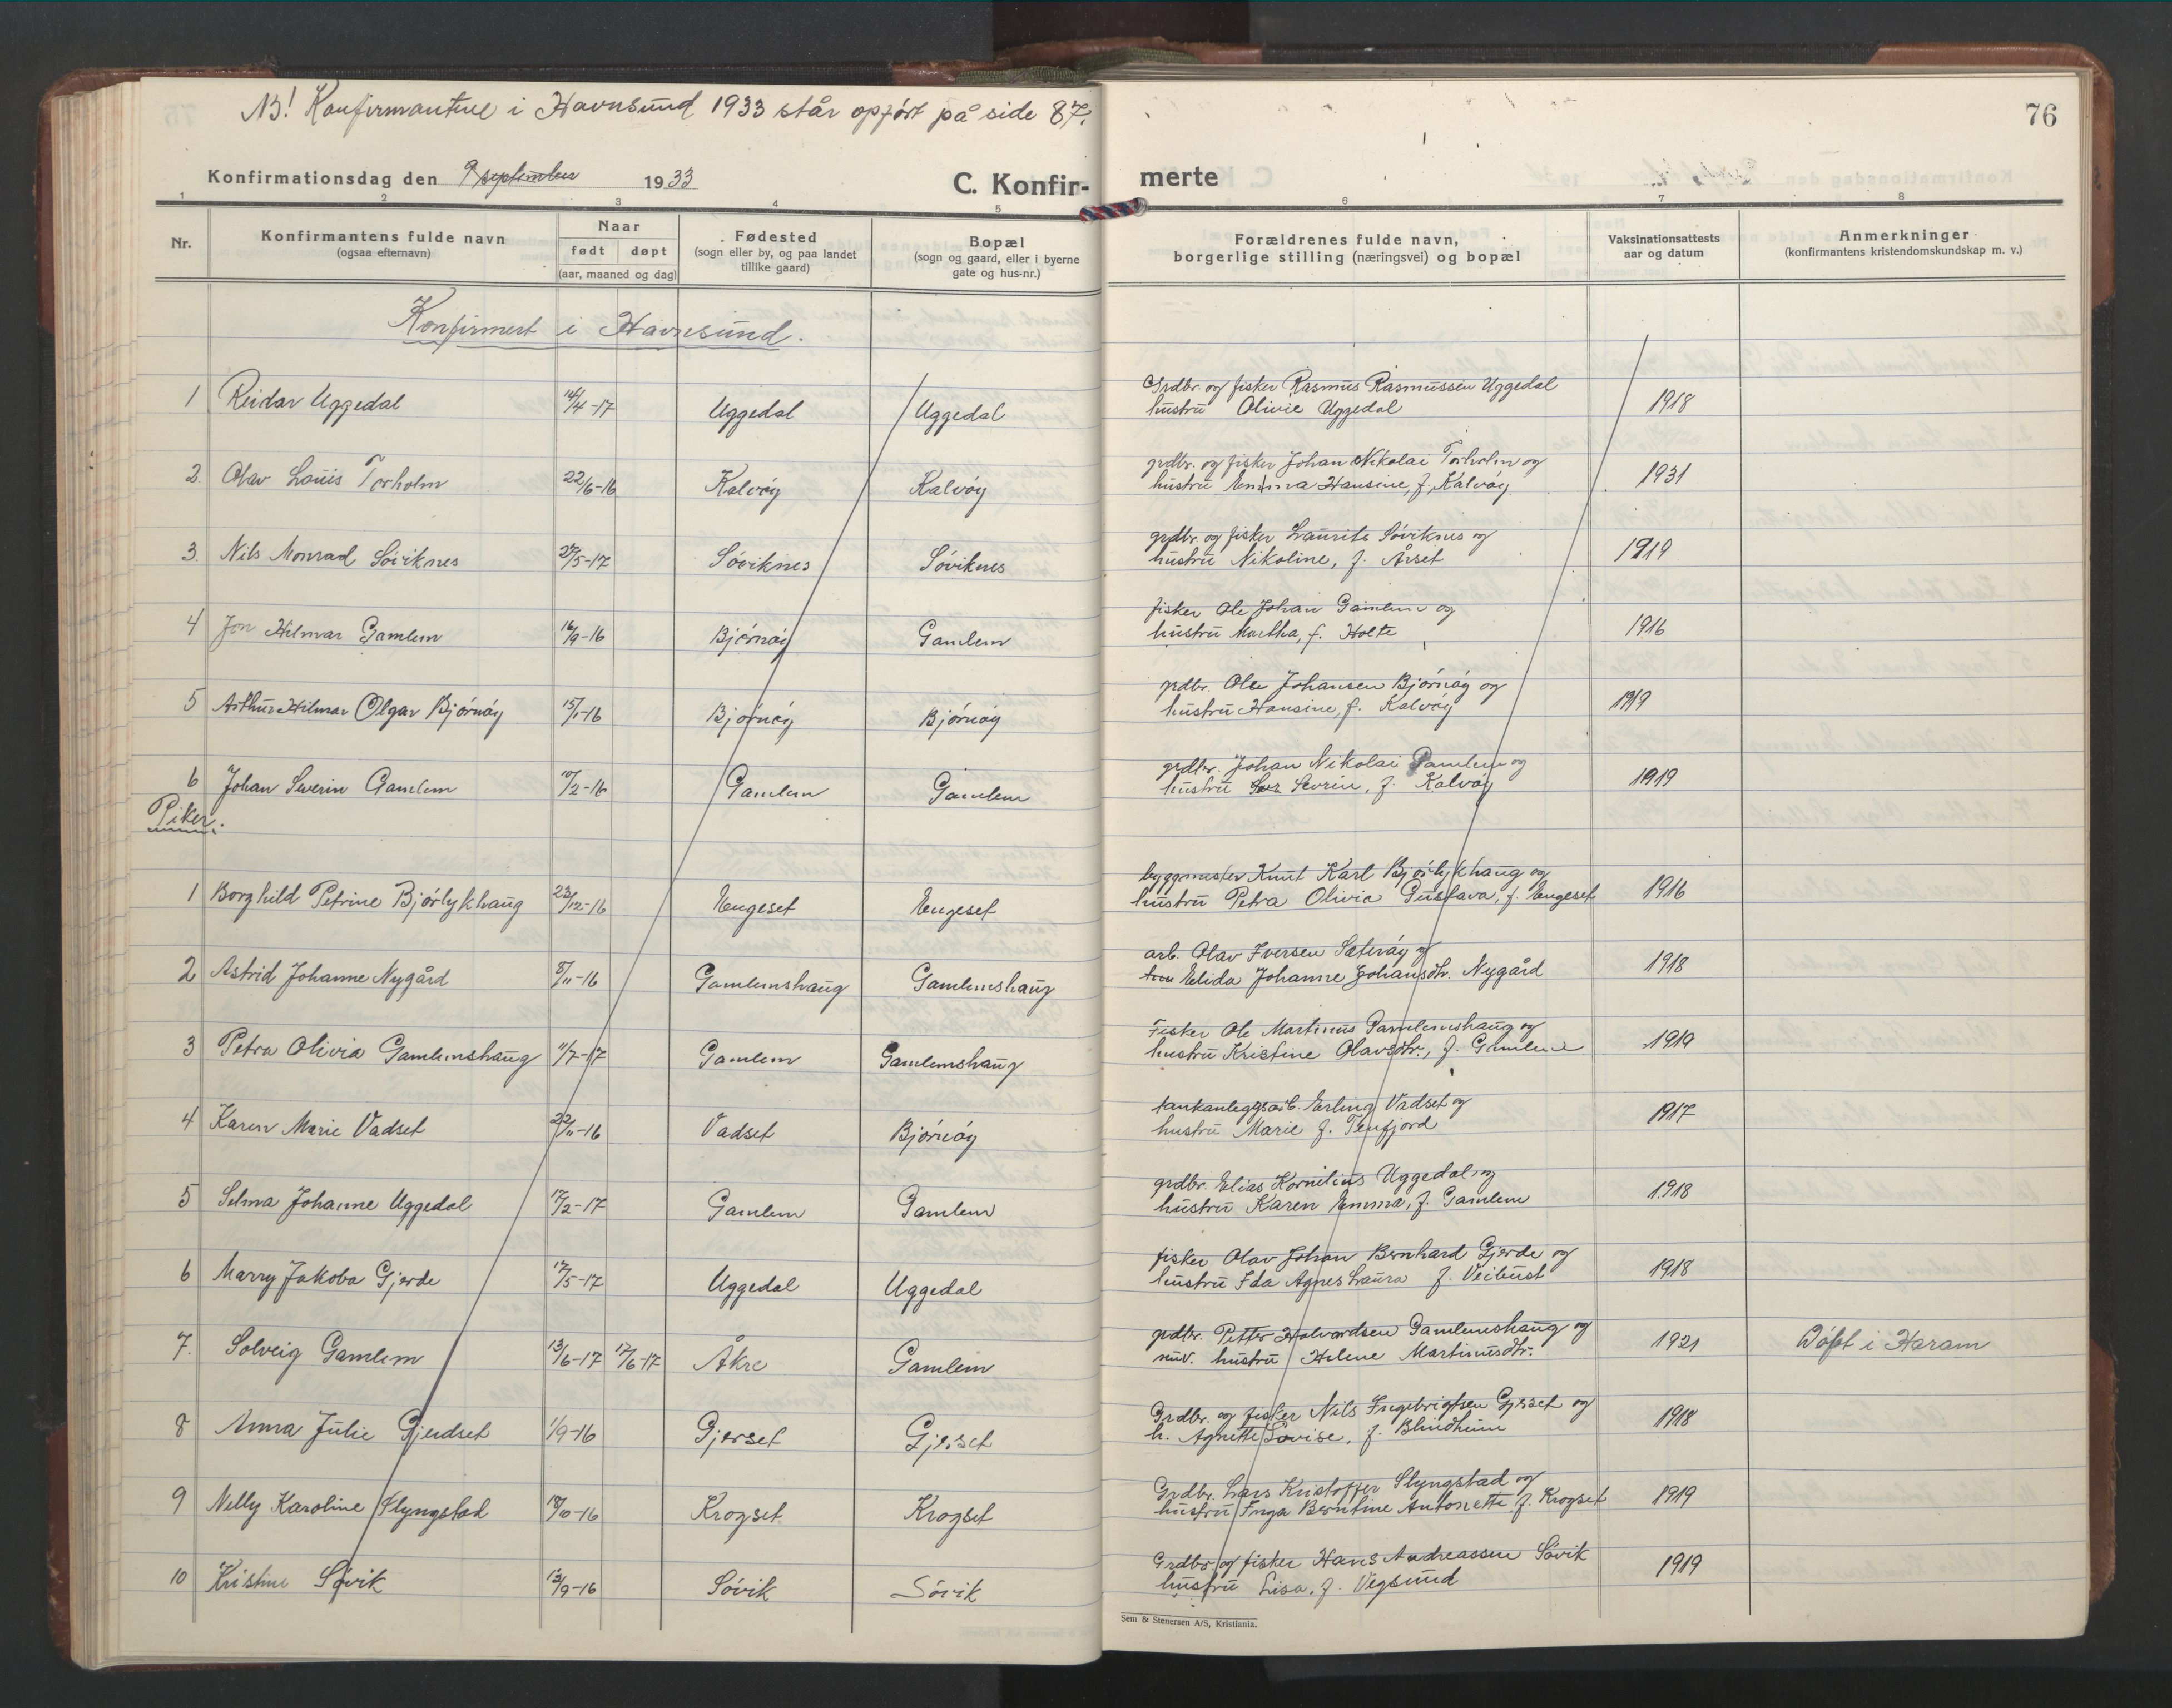 NB! Konfirmantene i Havnsund 1933 står opført på side 87.
76
Konfirmationsdag den 9 september 1933
C. Konfir-
merte
1 2 3 4 5 6 7 8
Nr.
Konfirmantens fulde navn
(ogsaa efternavn)
Naar
født døpt
(aar, maaned og dag)
Fødested
(sogn eller by, og paa landet
tillike gaard)
Bopæl
(sogn og gaard, eller i byerne
gate og hus-nr.)
Forældrenes fulde navn,
borgerlige stilling (næringsvei) og bopæl
Vaksinationsattests
aar og datum
Anmerkninger
(konfirmantens kristendomskundskap m. v.)
Konfirmert i Havnsund.
1 Reidar Uggedal 14/4-17 Uggedal Uggedal Grdbr. og fisker Rasmus Rasmussen Uggedal 1918
hustru Olivie Uggedal
2. Olav Louis Torholm 22/6-16 Kalvøy Kalvøy grdbr. og fisker Johan Nikolai Torholm og 1931
hustru Emma Hansine, f. Kalvøy
3. Nils Monrad Søviknes 27/5-17 Søviknes Søviknes grdbr. og fisker Laurits Søviknes og 1919
hustru Nikoline, f. Årset
4 Jon Hilmar Gamlem 16/9-16 Bjørnøy Gamlem fisker Ole Johan Gamlem og 1916
hustru Martha, f. Holte
5 Arthur Hilmar Olgar Bjørnøy 15/1-16 Bjørnøy Bjørnøy grdbr. Ole Johansen Bjørnøy og 1919
hustru Hansine, f. Kalvøy
6 Johan Severin Gamlem 10/2-16 Gamlem Gamlem grdbr. Johan Nikolai Gamlem og 1919
hustru Sevrin, f. Kalvøy
Piker.
1 Borghild Petrine Bjørlykhaug 23/12-16 Engeset Engeset byggmester Knut Karl Bjørlykhaug og 1916
hustru Petra Olivia Gustava, f. Engeset
2 Astrid Johanne Nygård 8/11-16 Gamlemshaug Gamlemshaug arb. Olav Iversen Sæterøy og 1918
Elida Johanne Johansdtr. Nygård
3 Petra Olivia Gamlemshaug 11/7-17 Gamlem Gamlemshaug Fisker Ole Martinus Gamlemshaug og 1919
hustru Kristine Olavsdtr., f. Gamlem
4 Karen Marie Vadset 22/11-16 Vadset Bjørnøy tankanleggsarb. Erling Vadset og 1917
hustru Marie f. Tenfjord
5 Selma Johanne Uggedal 17/2-17 Gamlem Gamlem grdbr. Elias Kornelius Uggedal og 1918
hustru Karen Emma, f. Gamlem
6 Marry Jakoba Gjerde 17/5-17 Uggedal Uggedal fisker Olav Johan Bernhard Gjerde og 1918
hustru Ida Agnes Laura f. Veibust
7. Solveig Gamlem 13/6-17 17/6-17 Åkre Gamlem grdbr. Petter Halvardsen Gamlemshaug og 1921 Døpt i Haram
nuv. hustru Helene Martinusdtr.
8 Anna Julie Gjerdset 1/9-16 Gjerset Gjerset Grdbr. og fisker Nils Ingebrigtsen Gjerset og 1918
h. Agnette Lovise, f. Blindheim
9 Nelly Karoline Slyngstad 18/10-16 Krogset Krogset Grdbr. Lars Kristoffer Slyngstad og 1919
hustru Inga Berntine Antonette f. Krogset
10 Kristine Søvik 13/9-16 Søvik Søvik Grdbr. og fisker Hans Andreassen Søvik 1919
hustru Lisa, f. Vegsund
Sem & Stenersen A/S, Kristiania.